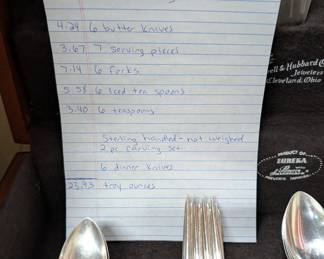 4.24 6 butter knives
3.67 7 serving pieces
7.14 6 forks
5.58 6 Iced tea spoons
3.40 6 teaspoons
Sterling handled - not weighed
2 pc carving set
6 dinner knives
23.93 troy ounces
ell & Hubbard C
Jewelers
Cleveland, Ohio
PRODUCT OF
EUREKA